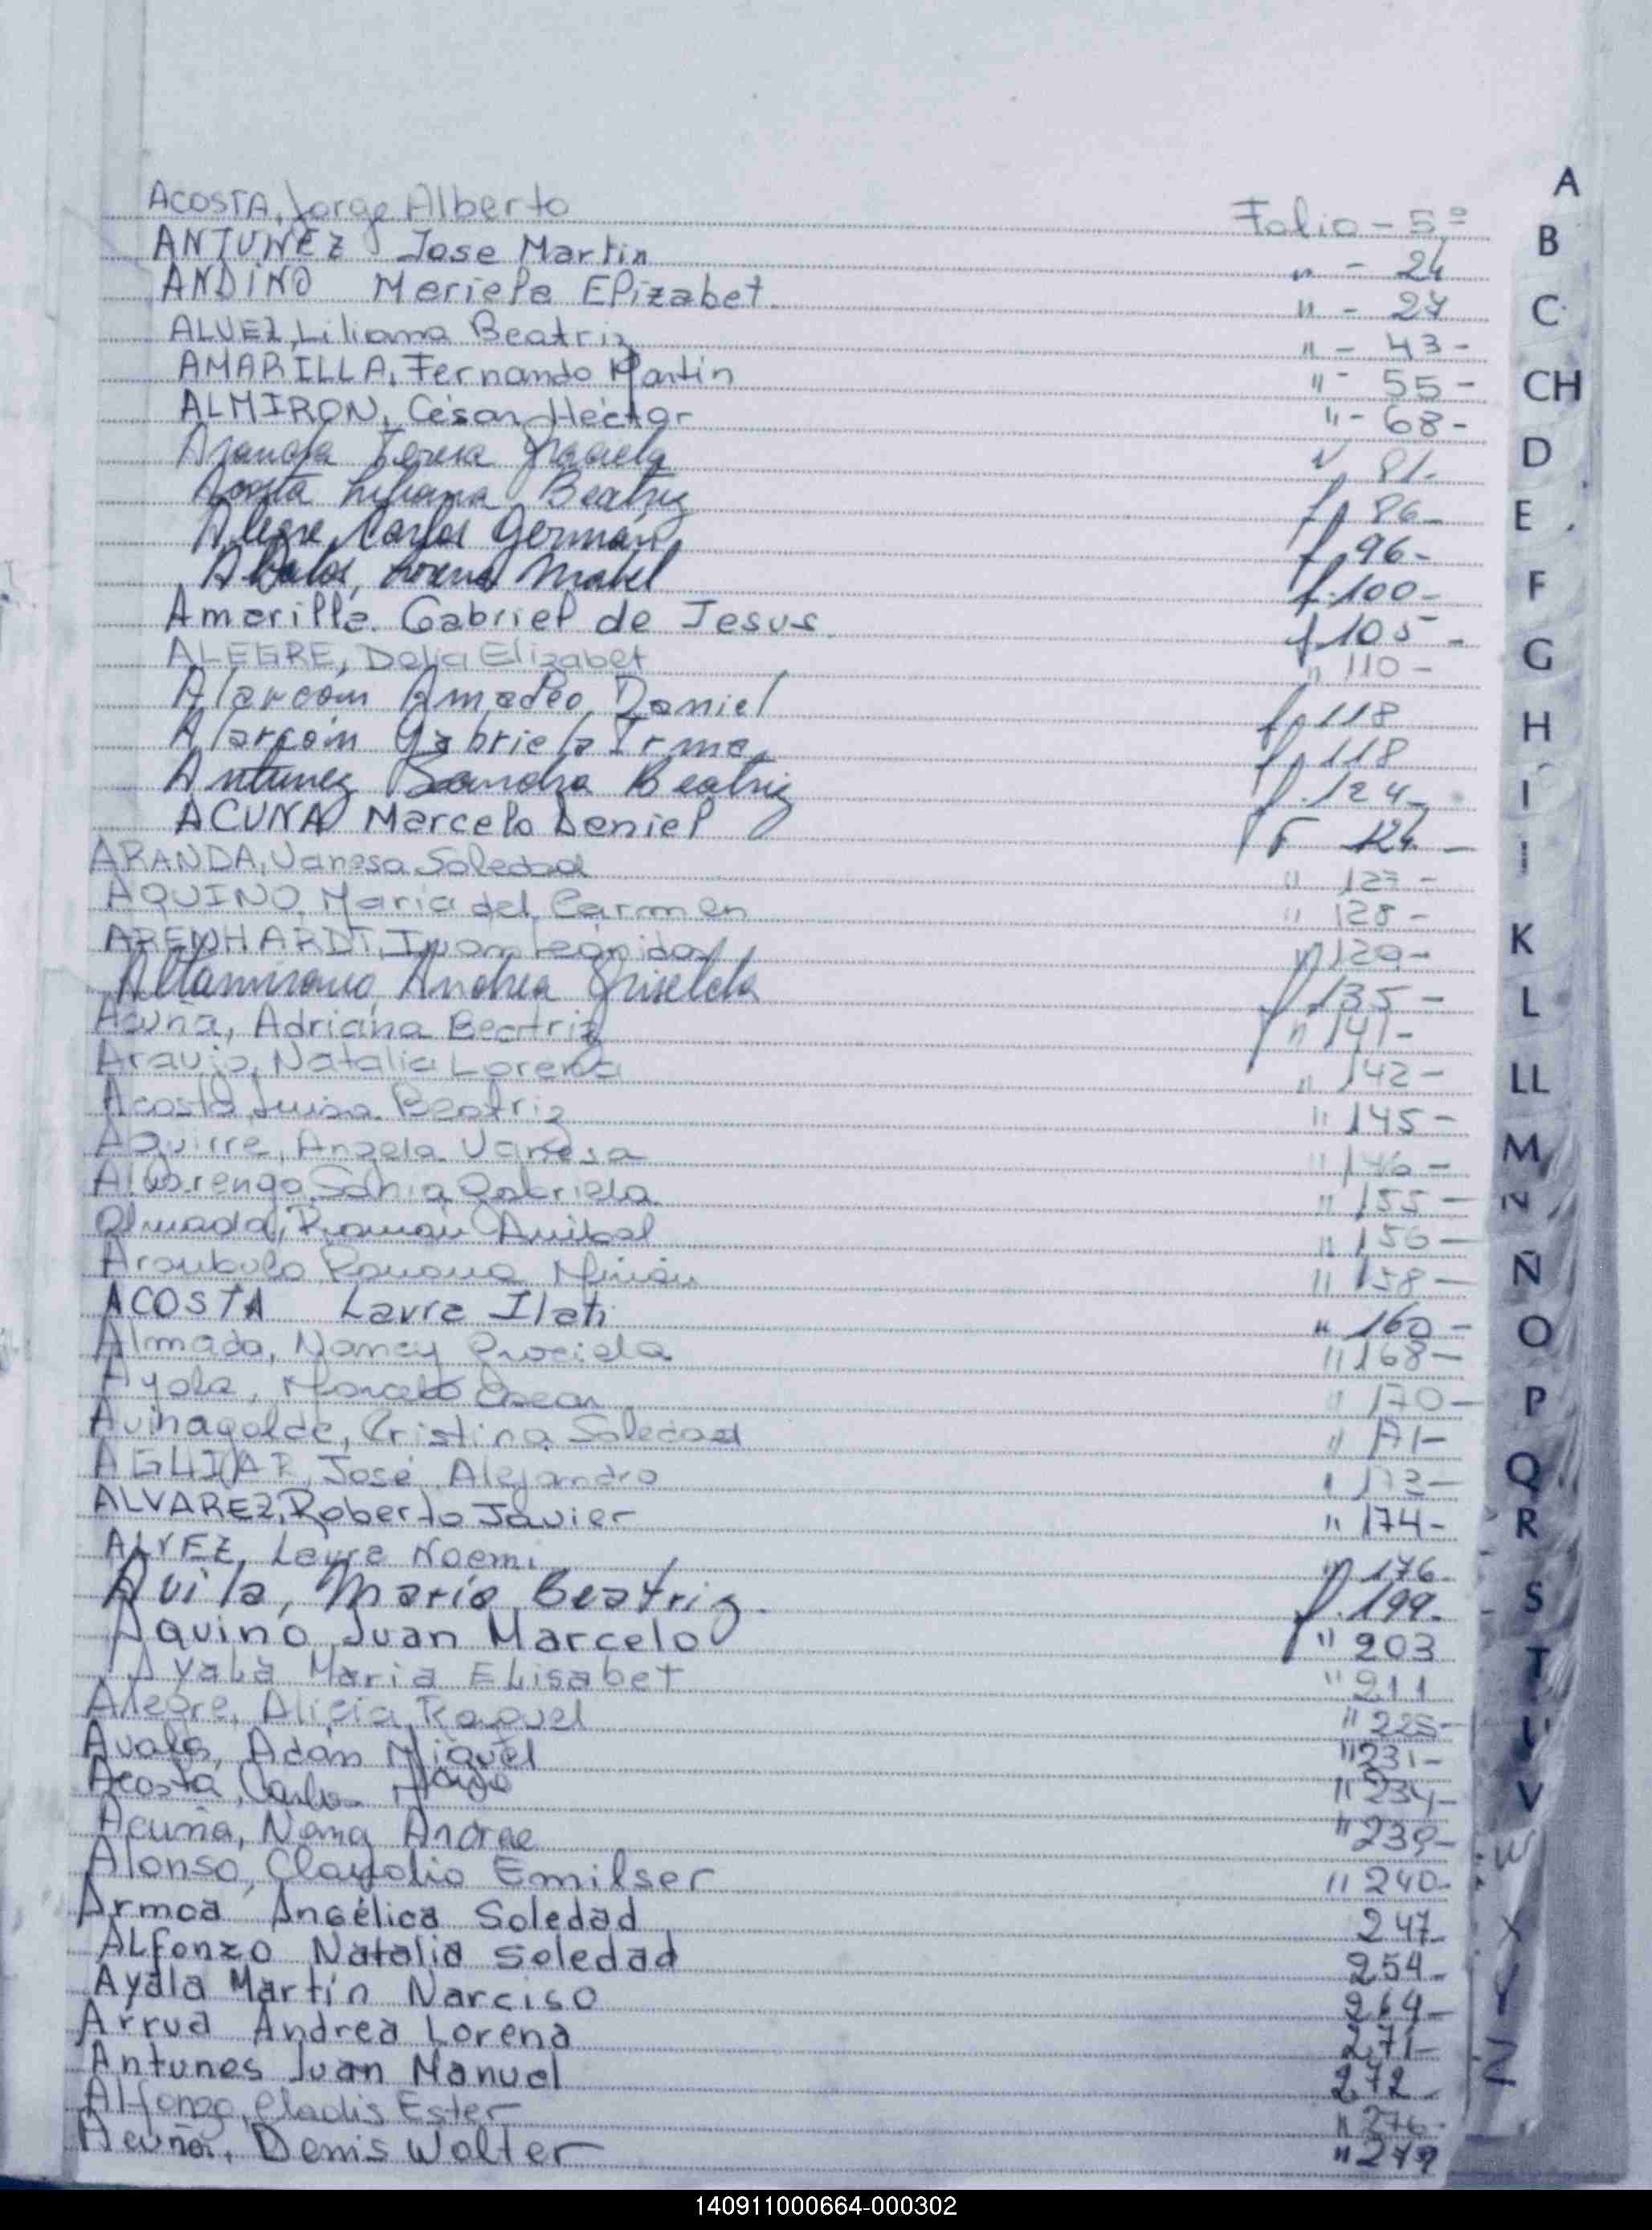 ACOSTA, Jorge Alberto Folio - 5º
ANTUNEZ Jose Martin " - 24
ANDINO Mariela Elizabet. " - 27
ALVEZ, Liliana Beatriz " - 43 -
AMARILLA, Fernando Martín " - 55 -
ALMIRON, César Héctor " - 68 -
Aranda Teresa Graciela " 81-
Acosta Liliana Beatriz f 86-
Alegre, Carlos Germán f 96-
Abalos, Lorena Mabel f. 100-
Amarilla Gabriel de Jesus f 105-
ALEGRE, Delia Elizabet " 110-
Alarcón Amadeo Daniel f 118
Alarcón Gabriela Irma f 118
Antunez Sandra Beatriz f. 124-
ACUÑA Marcelo Daniel F 124 -
ARANDA, Vanesa Soledad " 127-
AQUINO, María del Carmen " 128-
ARENHARDT, Ivan Leónidas " 129-
Altamirano, Andrea Griselda f 135-
Acuña, Adriana Beatriz " 141-
Araujo, Natalia Lorena " 142-
Acosta, Luisa Beatriz " 145-
Aguirre, Angela Vanesa " 146-
Alvarenga, Sonia Gabriela " 155-
Almada, Román Anibal " 156-
Arambulo Romona Miriam " 158-
ACOSTA Laura Itati " 160-
Almada, Nancy Graciela " 168-
Ayala, Marcelo Oscar " 170-
Avinagalde, Cristina Soledad " 171-
AGUIAR, José Alejandro " 173-
ALVAREZ, Roberto Javier " 174-
ALVEZ, Laura Noemi " 176-
Avila, María Beatriz. f. 199-
Aquino Juan Marcelo " 203
Ayala Maria Elisabet " 211
Alegre, Alicia Raquel " 225-
Avalo, Adán Miguel " 231-
Acosta, Carlos " 234-
Acuña, Andrea " 239-
Alonso, Claudio Emilser " 240-
Armoa Angélica Soledad 247-
ALfonzo Natalia Soledad 254-
Ayala Martín Narciso 264-
Arrua Andrea Lorena 271-
Antunes Juan Manuel 272-
Alfonzo, Gladis Ester " 276-
Acuña, Denis Walter " 279
A
B
C
CH
D
E
F
G
H
I
K
L
LL
M
N
Ñ
O
P
Q
R
S
T
U
V
W
X
Y
Z
140911000664-000302